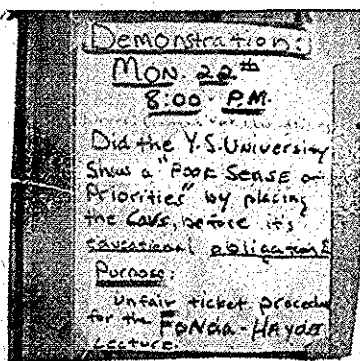 Demonstration:
MON. 22th
8:00 P.M.
Did the Y.S. University
Show a "Poor Sense of
Priorities" by placing
the Cavs, before its
educational obligations
Purpose:
Unfair ticket procedu
for the FONDA-HAYDEN
Lecture.